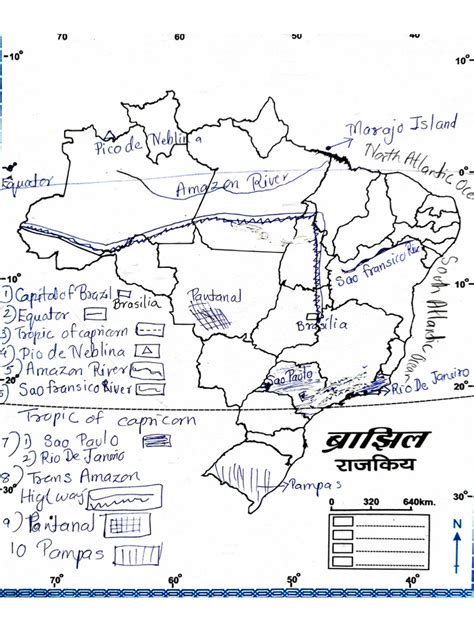 70 60 50 40
10°
10°
Marajo Island
Pico de Neblina
North Atlantic Oce
0°
0°
Equator
Amazon River
Sao fransico River
South Atlantic Ocean
10°
10°
1) Capital of Brazil
Brasilia
Pantanal
Brasilia
2) Equator
3) Tropic of capricorn
4) Pio de Neblina
5) Amazon River
Sao Paulo
Rio De Janeiro
20
20°
6) Saofransico River
Tropic of capricorn
7) 1) Sao Paulo
2) Rio De Janiro
ब्राझिल
राजकिय
8) Trans Amazon
Pampas
Highway
30°
30°
0 320 640km.
9) Pantanal
N
10 Pampas
70° 60° 50° 40°